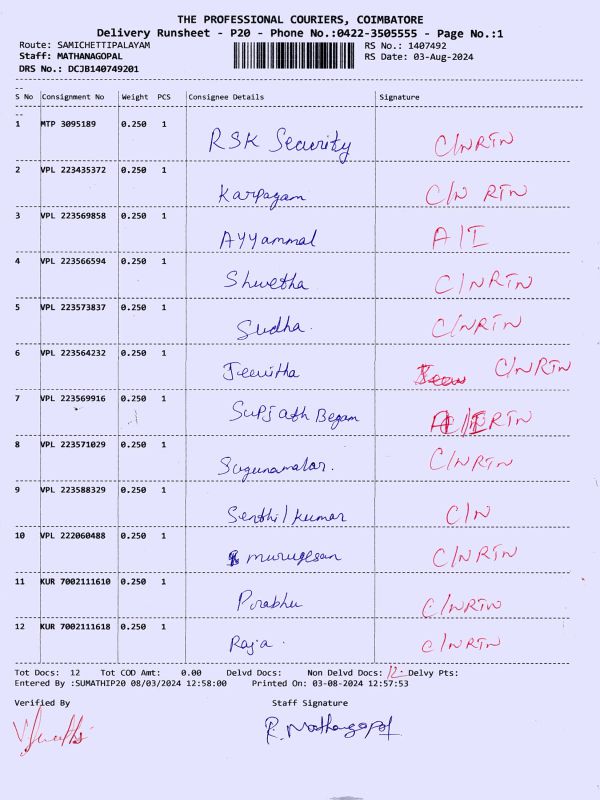 THE PROFESSIONAL COURIERS, COIMBATORE
Delivery Runsheet - P20 - Phone No.:0422-3505555 - Page No.:1
Route: SAMICHETTIPALAYAM RS No.: 1407492
Staff: MATHANAGOPAL RS Date: 03-Aug-2024
DRS No.: DCJB140749201
S No Consignment No Weight PCS Consignee Details Signature
1 MTP 3095189 0.250 1 RSK Security C/NRTN
2 VPL 223435372 0.250 1 Karpagam C/N RTN
3 VPL 223569858 0.250 1 Ayyammal A/I
4 VPL 223566594 0.250 1 Shwetha C/NRTN
5 VPL 223573837 0.250 1 Sudha. C/NRTN
6 VPL 223564232 0.250 1 Jeevitha C/NRTN
7 VPL 223569916 0.250 1 Begam RTN
8 VPL 223571029 0.250 1 C/NRTN
9 VPL 223588329 0.250 1 Senthil kumar C/N
10 VPL 222060488 0.250 1 murugesan C/NRTN
11 KUR 7002111610 0.250 1 Prabhu C/NRTN
12 KUR 7002111618 0.250 1 Raja. C/NRTN
Tot Docs: 12 Tot COD Amt: 0.00 Delvd Docs: Non Delvd Docs: 12. Delvy Pts:
Entered By :SUMATHIP20 08/03/2024 12:58:00 Printed On: 03-08-2024 12:57:53
Verified By Staff Signature
R. Mathanagopal